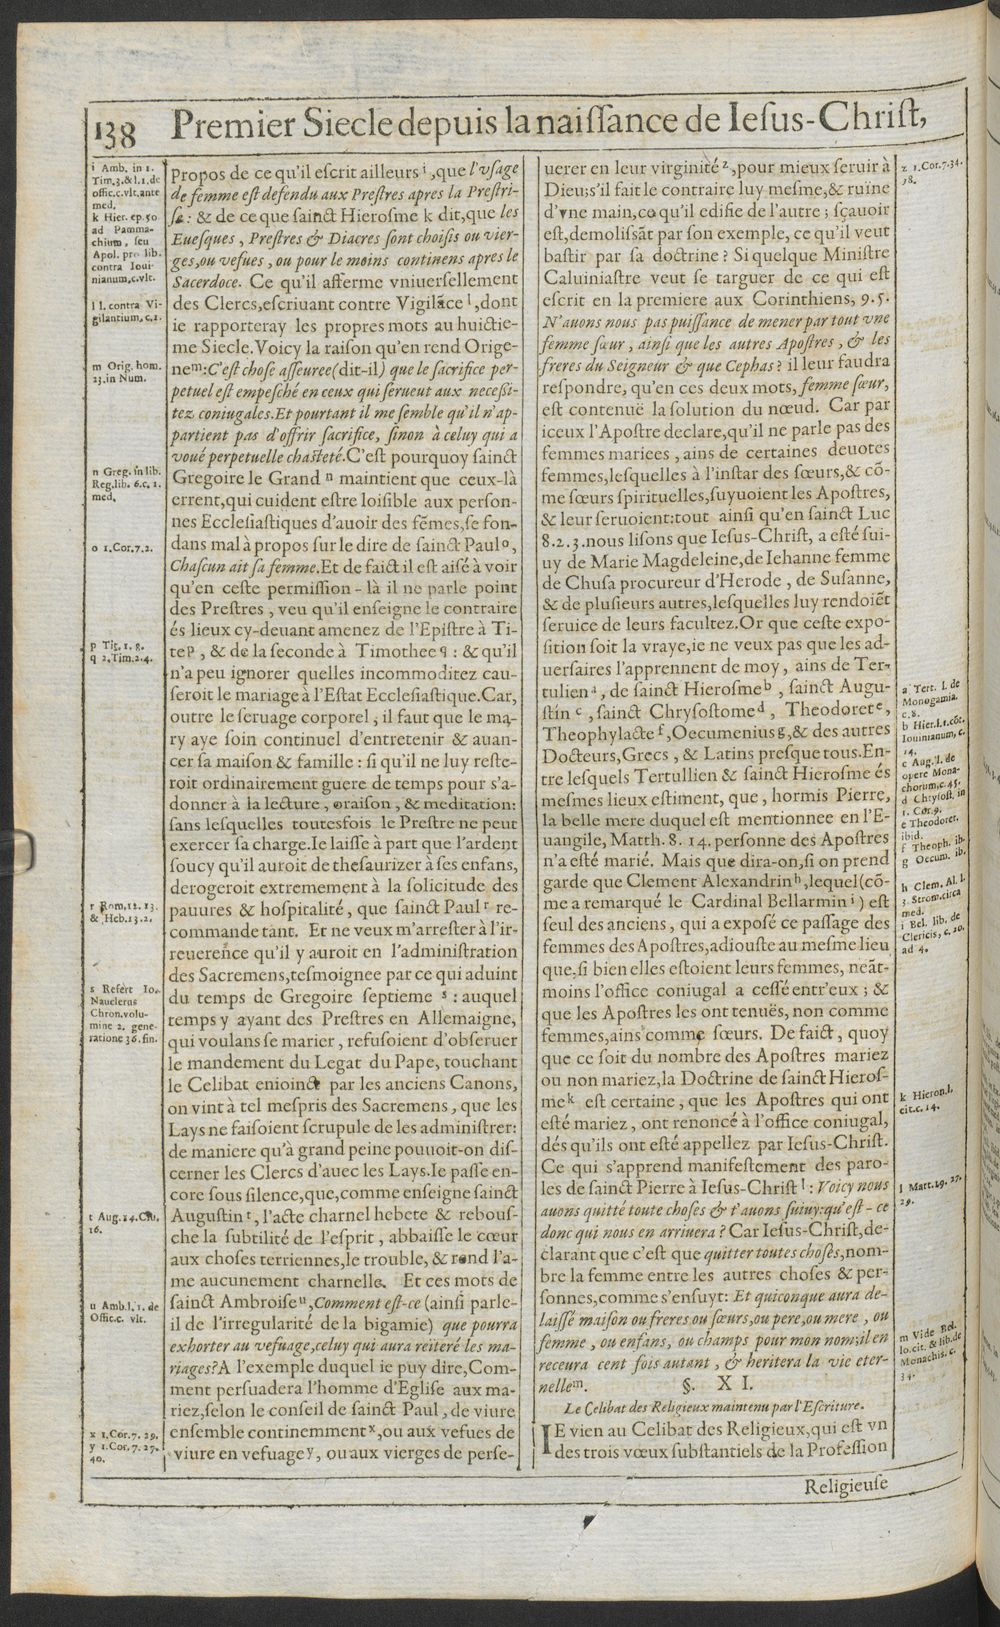 138 Premier Siecle depuis la naiſſance de Ieſus-Chriſt,
i Amb. in 1.
Tim.3.& l.1.de
offic.c.vlt.ante
med.
k Hier. ep.50
ad Pamma-
chium, ſeu
Apol. pro lib.
contra Ioui-
nianum,c.vlt.
l l. contra Vi-
gilantium, c.1.
m Orig. hom.
23.in Num.
n Greg. in lib.
Reg.lib. 6.c. 1.
med.
o 1.Cor.7.2.
p Tit. 1. 8.
q 2.Tim.2.4.
r Rom.12. 13.
& Heb.13.2.
s Refert Io.
Nauclerus
Chron.volu-
mine 2. gene-
ratione 36.fin.
t Aug.14.Ciu.
16.
u Amb.l. 1. de
Offic.c. vlt.
x 1.Cor.7. 29.
y 1.Cor.7. 27.
40.
Propos de ce qu'il eſcrit ailleurs i, que l'vſage
de femme eſt defendu aux Preſtres apres la Preſtri-
ſe: & de ce que ſainct Hieroſme k dit,que les
Eueſques, Preſtres & Diacres ſont choiſis ou vier-
ges,ou vefues, ou pour le moins continens apres le
Sacerdoce. Ce qu'il afferme vniuerſellement
des Clercs,eſcriuant contre Vigilãce l,dont
ie rapporteray les propres mots au huictie-
me Siecle.Voicy la raiſon qu'en rend Orige-
ne m:C'eſt choſe aſſeuree(dit-il) que le ſacrifice per-
petuel eſt empeſché en ceux qui ſeruent aux neceßi-
tez coniugales.Et pourtant il me ſemble qu'il n'ap-
partient pas d'offrir ſacrifice, ſinon à celuy qui a
voué perpetuelle chaſteté.C'eſt pourquoy ſainct
Gregoire le Grand n maintient que ceux-là
errent,qui cuident eſtre loiſible aux perſon-
nes Eccleſiaſtiques d'auoir des fẽmes,ſe fon-
dans mal à propos ſur le dire de ſainct Paul o,
Chaſcun ait ſa femme.Et de faict il est aiſé à voir
qu'en ceſte permiſſion-là il ne parle point
des Preſtres, veu qu'il enſeigne le contraire
és lieux cy-deuant amenez de l'Epiſtre à Ti-
te p, & de la ſeconde à Timothee q: & qu'il
n'a peu ignorer quelles incommoditez cau-
ſeroit le mariage à l'Eſtat Eccleſiaſtique.Car,
outre le ſeruage corporel, il faut que le ma-
ry aye ſoin continuel d'entretenir & auan-
cer ſa maiſon & famille: ſi qu'il ne luy reſte-
roit ordinairement guere de temps pour s'a-
donner à la lecture, oraiſon, & meditation:
ſans leſquelles toutesfois le Preſtre ne peut
exercer ſa charge.Ie laiſſe à part que l'ardent
ſoucy qu'il auroit de theſaurizer à ſes enfans,
derogeroit extremement à la ſolicitude des
pauures & hoſpitalité, que ſainct Paul r re-
commande tant. Et ne veux m'arreſter à l'ir-
reuerence qu'il y auroit en l'adminiſtration
des Sacremens,teſmoignee par ce qui aduint
du temps de Gregoire ſeptieme s: auquel
temps y ayant des Preſtres en Allemaigne,
qui voulans ſe marier, refuſoient d'obſeruer
le mandement du Legat du Pape, touchant
le Celibat enioinct par les anciens Canons,
on vint à tel meſpris des Sacremens, que les
Lays ne faiſoient ſcrupule de les adminiſtrer:
de maniere qu'à grand peine pouuoit-on diſ-
cerner les Clercs d'auec les Lays.Ie paſſe en-
core ſous ſilence,que,comme enſeigne ſainct
Auguſtin t, l'acte charnel hebete & rebouſ-
che la ſubtilité de l'eſprit, abbaiſſe le cœur
aux choſes terriennes,le trouble, & rend l'a-
me aucunement charnelle. Et ces mots de
ſainct Ambroiſe u,Comment eſt-ce (ainſi parle-
il de l'irregularité de la bigamie) que pourra
exhorter au vefuage,celuy qui aura reiteré les ma-
riages?A l'exemple duquel ie puy dire,Com-
ment perſuadera l'homme d'Egliſe aux ma-
riez,ſelon le conſeil de ſainct Paul, de viure
enſemble continemment x,ou aux vefues de
viure en vefuage y, ou aux vierges de perſe-
uerer en leur virginité z,pour mieux ſeruir à
Dieu:s'il fait le contraire luy meſme,& ruine
d'vne main,ce qu'il edifie de l'autre; ſçauoir
eſt,demoliſsãt par ſon exemple, ce qu'il veut
baſtir par ſa doctrine? Si quelque Miniſtre
Caluiniaſtre veut ſe targuer de ce qui eſt
eſcrit en la premiere aux Corinthiens, 9.5.
N'auons nous pas puiſſance de mener par tout vne
femme ſœur, ainſi que les autres Apoſtres, & les
freres du Seigneur & que Cephas? il leur faudra
reſpondre, qu'en ces deux mots, femme ſœur,
eſt contenuë la ſolution du nœud. Car par
iceux l'Apoſtre declare,qu'il ne parle pas des
femmes mariees, ains de certaines deuotes
femmes,leſquelles à l'inſtar des ſœurs,& cõ-
me ſœurs ſpirituelles,ſuyuoient les Apoſtres,
& leur ſeruoient:tout ainſi qu'en ſainct Luc
8.2.3.nous liſons que Ieſus-Chriſt, a eſté ſui-
uy de Marie Magdeleine,de Iehanne femme
de Chuſa procureur d'Herode, de Suſanne,
& de pluſieurs autres,leſquelles luy rendoiẽt
ſeruice de leurs facultez.Or que ceſte expo-
ſition ſoit la vraye,ie ne veux pas que les ad-
uerſaires l'apprennent de moy, ains de Ter-
tulien a, de ſainct Hieroſme b, ſainct Augu-
ſtin c, ſainct Chryſoſtome d, Theodoret e,
Theophylacte f,Oecumenius g,& des autres
Docteurs,Grecs, & Latins preſque tous.En-
tre leſquels Tertullien & ſainct Hieroſme és
meſmes lieux eſtiment, que, hormis Pierre,
la belle mere duquel eſt mentionnee en l'E-
uangile, Matth. 8. 14. perſonne des Apoſtres
n'a eſté marié. Mais que dira-on,ſi on prend
garde que Clement Alexandrin h,lequel(cõ-
me a remarqué le Cardinal Bellarmin i) eſt
ſeul des anciens, qui a expoſé ce paſſage des
femmes des Apoſtres,adiouſte au meſme lieu
que,ſi bien elles eſtoient leurs femmes, neãt-
moins l'office coniugal a ceſſé entr'eux; &
que les Apoſtres les ont tenuës, non comme
femmes,ains comme ſœurs. De faict, quoy
que ce ſoit du nombre des Apoſtres mariez
ou non mariez,la Doctrine de ſainct Hieroſ-
me k eſt certaine, que les Apoſtres qui ont
eſté mariez, ont renoncé à l'office coniugal,
dés qu'ils ont eſté appellez par Ieſus-Chriſt.
Ce qui s'apprend manifeſtement des paro-
les de ſainct Pierre à Ieſus-Chriſt l: Voicy nous
auons quitté toute choſes & t'auons ſuiuy:qu'eſt-ce
donc qui nous en arriuera? Car Ieſus-Chriſt,de-
clarant que c'eſt que quitter toutes choſes,nom-
bre la femme entre les autres choſes & per-
ſonnes,comme s'enſuyt: Et quiconque aura de-
laiſſé maiſon ou freres ou ſœurs,ou pere,ou mere, ou
femme, ou enfans, ou champs pour mon nom;il en
receura cent fois autant, & heritera la vie eter-
nelle m. §. XI.
Le Celibat des Religieux maintenu par l'Eſcriture.
IE vien au Celibat des Religieux,qui eſt vn
des trois vœux ſubſtantiels de la Profeſſion
z 1.Cor.7.34.
38.
a Tert. l. de
Monogamia.
c.8.
b Hier.l.1.cõt.
Iouinianum, c.
14.
c Aug. l. de
opere Mona-
chorum,c.45.
d Chryſoſt. in
1. Cor.9.
e Theodoret.
ibid.
f Theoph. ib.
g Oecum. ib.
h Clem. Al. l.
3. Strom.circa
med.
i Bel. lib. de
Clericis, c. 20.
ad 4.
k Hieron.l.
cit.c. 14.
l Matt.19. 27.
29.
m Vide Bel.
lo.cit. & lib.de
Monachis. c.
34.
Religieuſe